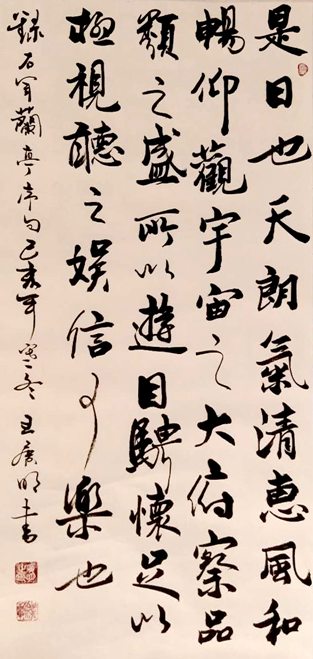 是日也天朗氣清恵風和
暢仰觀宇宙之大俯察品
類之盛所以遊目騁懷足以
極視聽之娛信可樂也
錄右軍蘭亭序句己亥年寒冬王明書